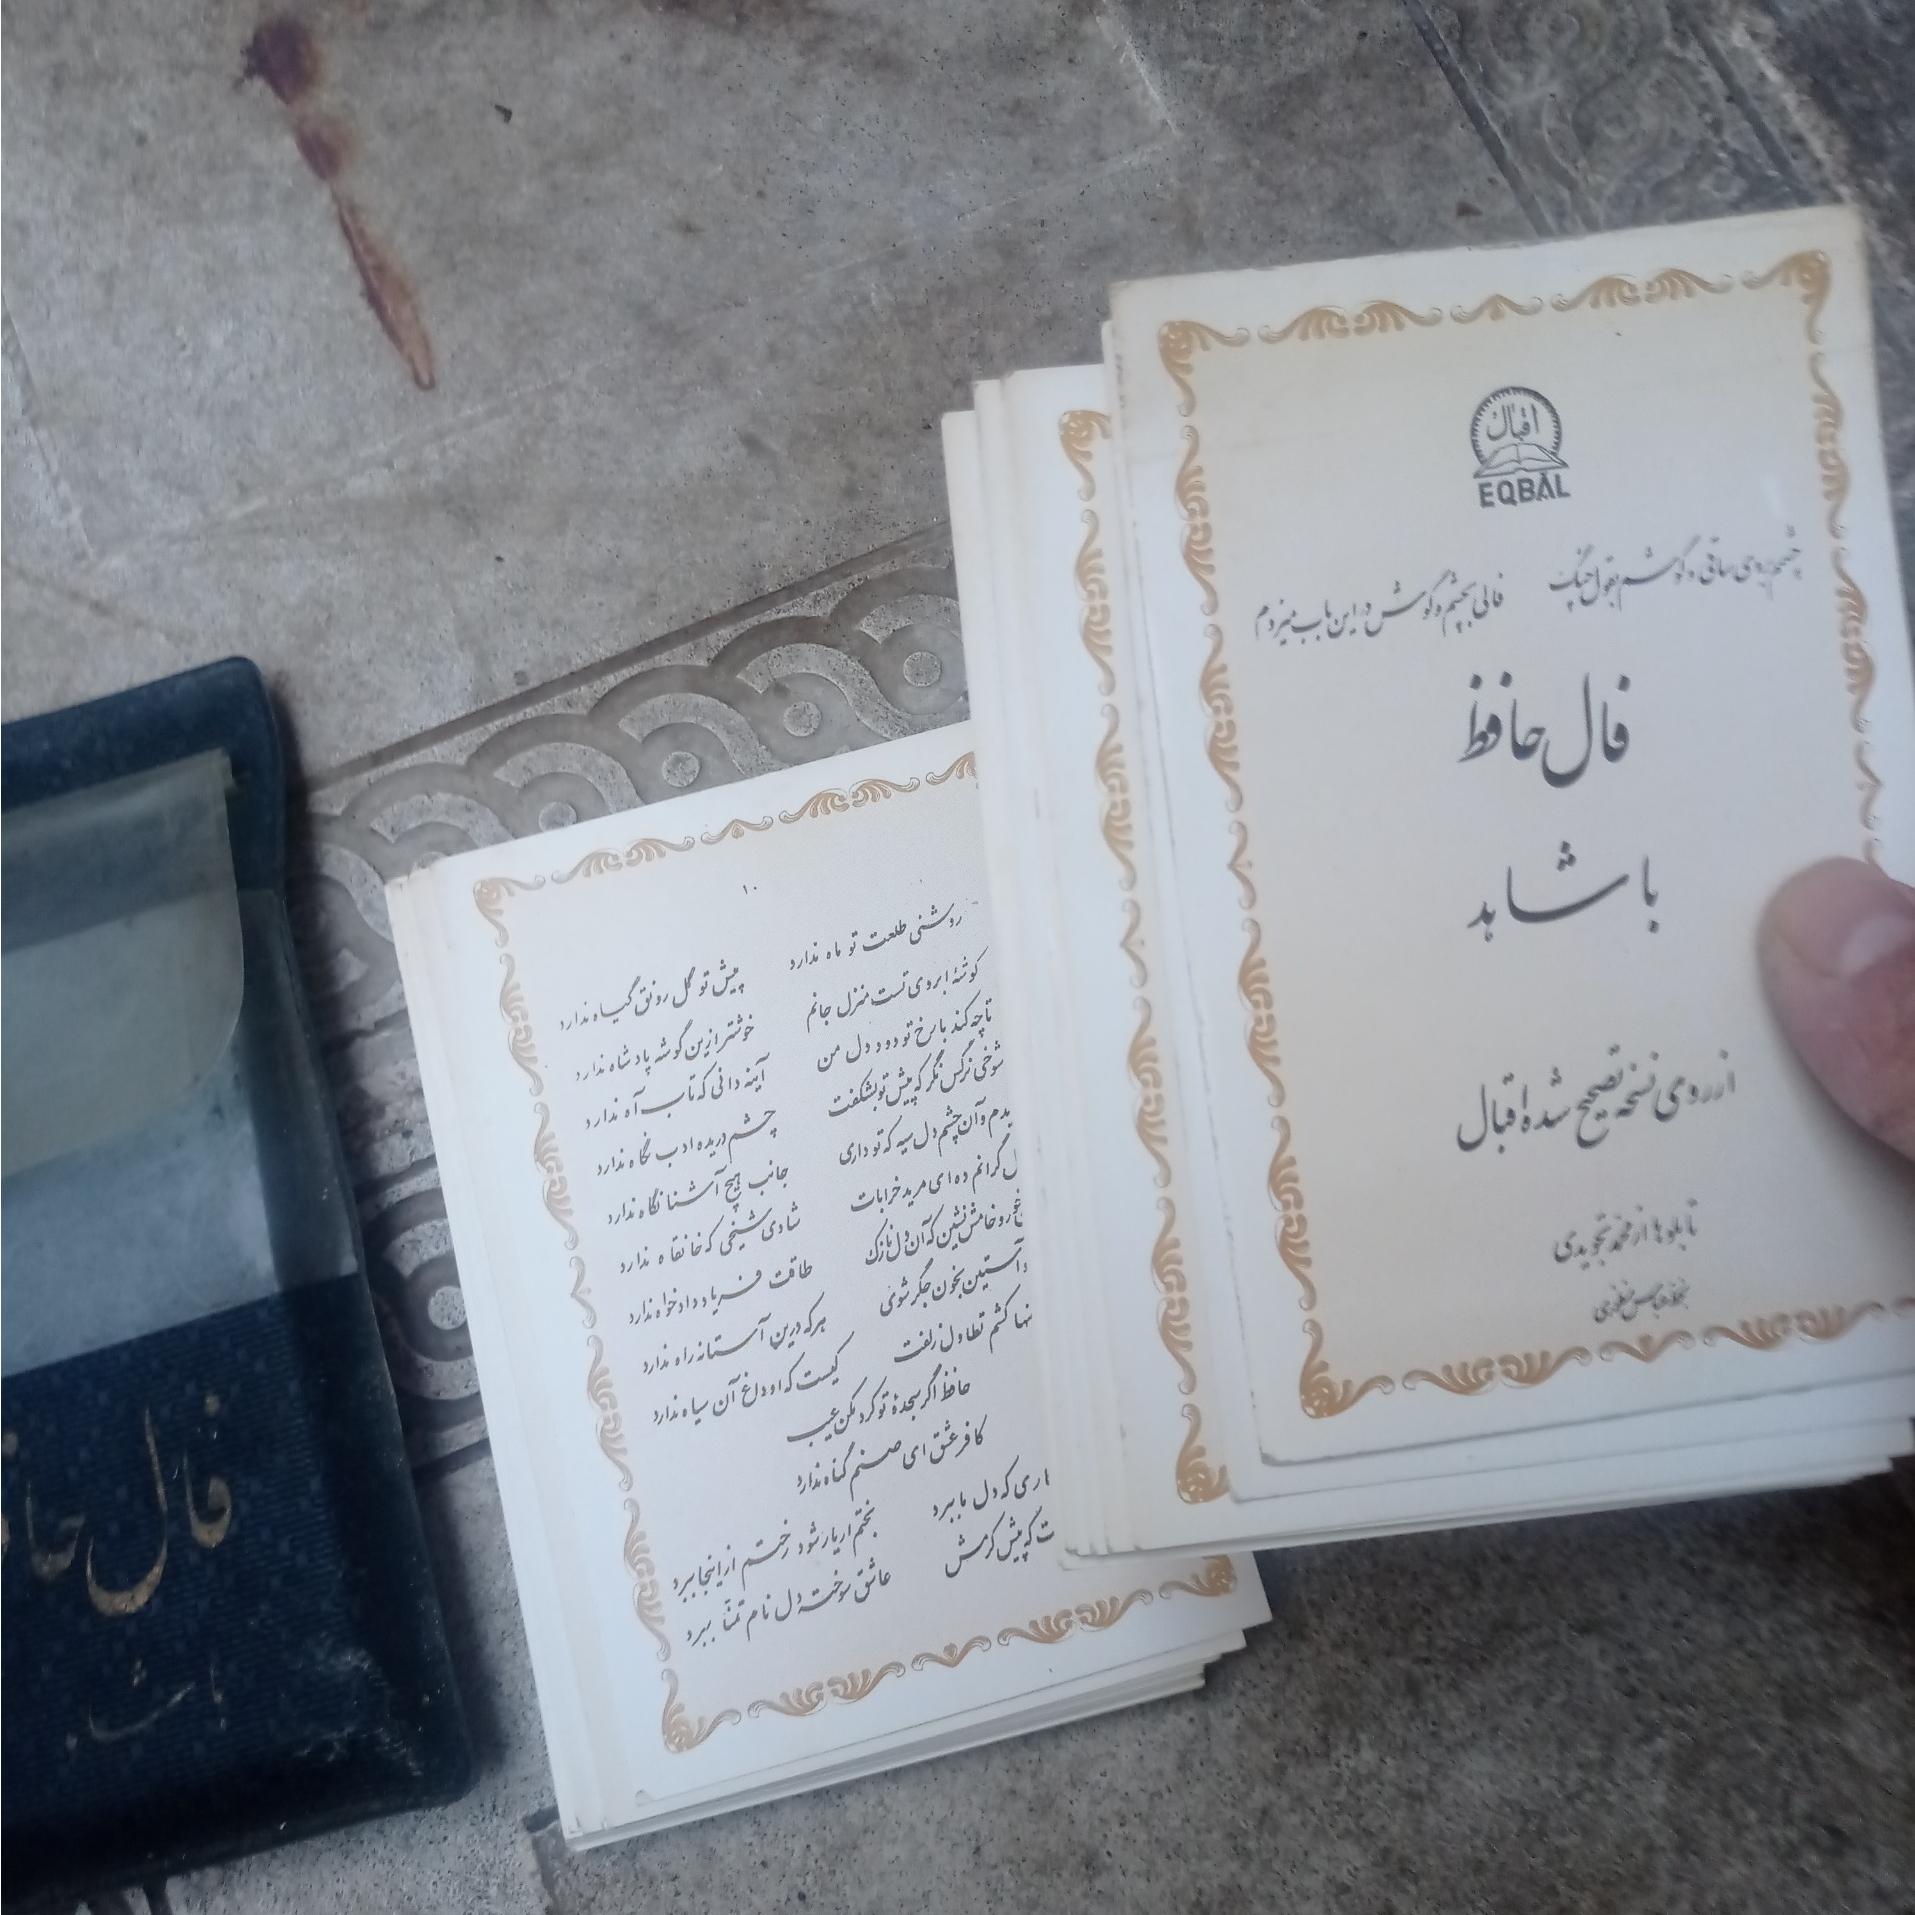 اقبال
EQBAL
چشمم بروی ساقی و گوشم بقول چنگ
فالی بچشم و گوش در این باب میزدم
فال حافظ
با شاهد
از روی نسخه تصحیح شده اقبال
تابلوها از محمد تجویدی
۱۰
روشنی طلعت تو ماه ندارد
پیش تو گل رونق گیاه ندارد
گوشهٔ ابروی تست منزل جانم
خوشتر ازین گوشه پادشاه ندارد
تا چه کند با رخ تو دود دل من
آینه دانی که تاب آه ندارد
شوخی نرگس نگر که پیش تو بشکفت
چشم دریده ادب نگاه ندارد
دیدم و آن چشم دل سیه که تو داری
جانب هیچ آشنا نگاه ندارد
گرانم ده ای مرید خرابات
شادی شیخی که خانقاه ندارد
خور و خامش نشین که آن دل نازک
طاقت فریاد دادخواه ندارد
آستین بخون جگر شوی
هر که درین آستانه راه ندارد
تنها کشم تطاول زلفت
کیست که او داغ آن سیاه ندارد
حافظ اگر سجدهٔ تو کرد مکن عیب
کافر عشق ای صنم گناه ندارد
که دل ما ببرد
بختم ار یار شود رختم از اینجا ببرد
که پیش کرمش
عاشق سوخته دل نام تمنّا ببرد
فال